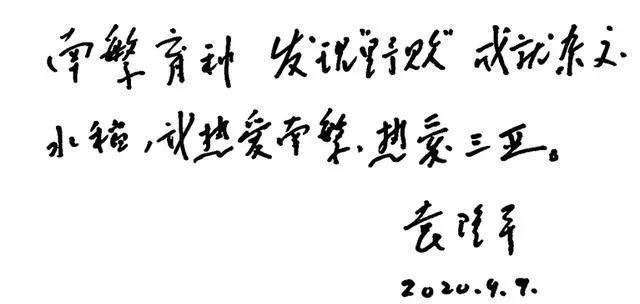 南繁育种 发现“野败” 成就杂交
水稻,我热爱南繁、热爱三亚。
袁隆平
2020.9.9.